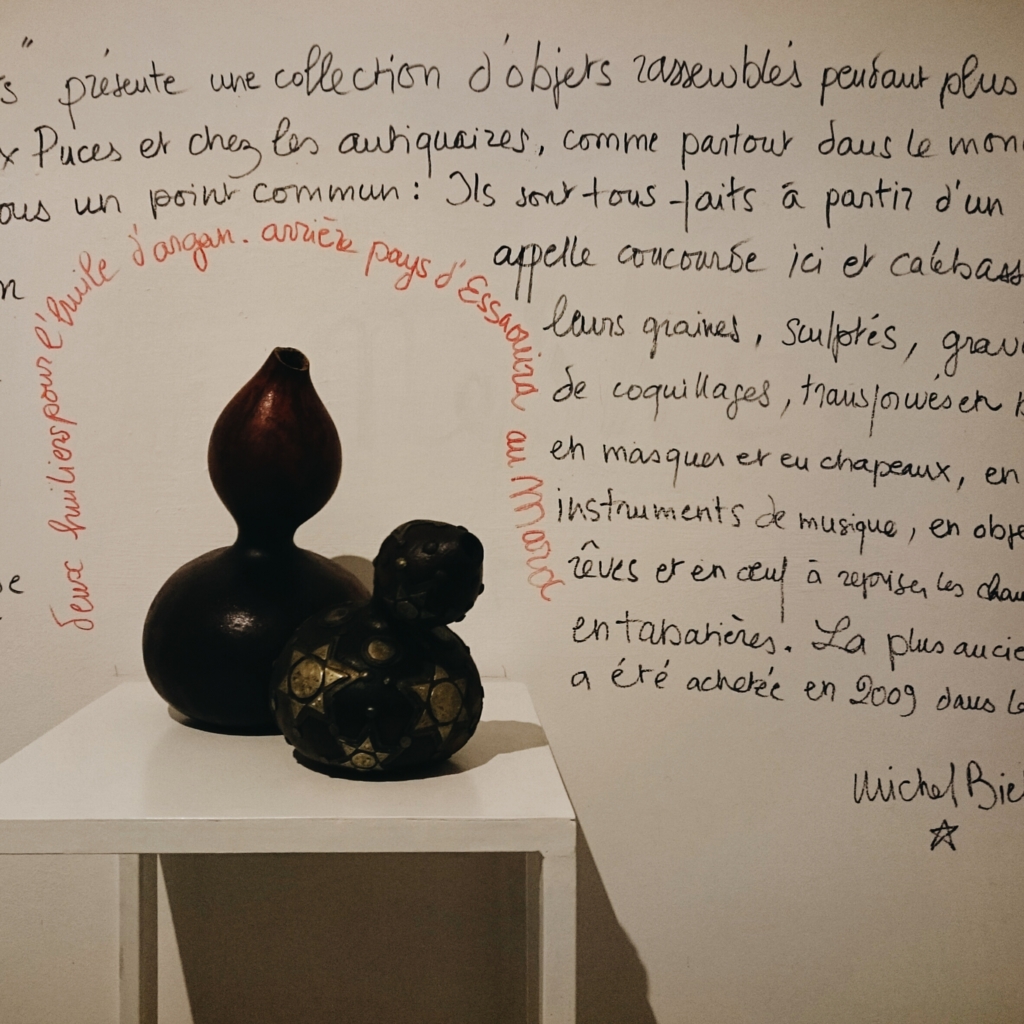 s" présente une collection d'objets rassemblés pendant plus
x Puces et chez les antiquaires, comme partout dans le mon
ous un point commun: Ils sont tous faits à partir d'un
n appelle coucourde ici et calebass
leurs graines, sculptés, grav
de coquillages, transformés en
en masques et en chapeaux, en
instruments de musique, en obje
rêves et en œuf à repriser les chau
en tabatières. La plus ancie
a été achetée en 2009 dans l
Michel Bie
deux huiliers pour l'huile d'argan. arrière pays d'Essaouira au Maroc